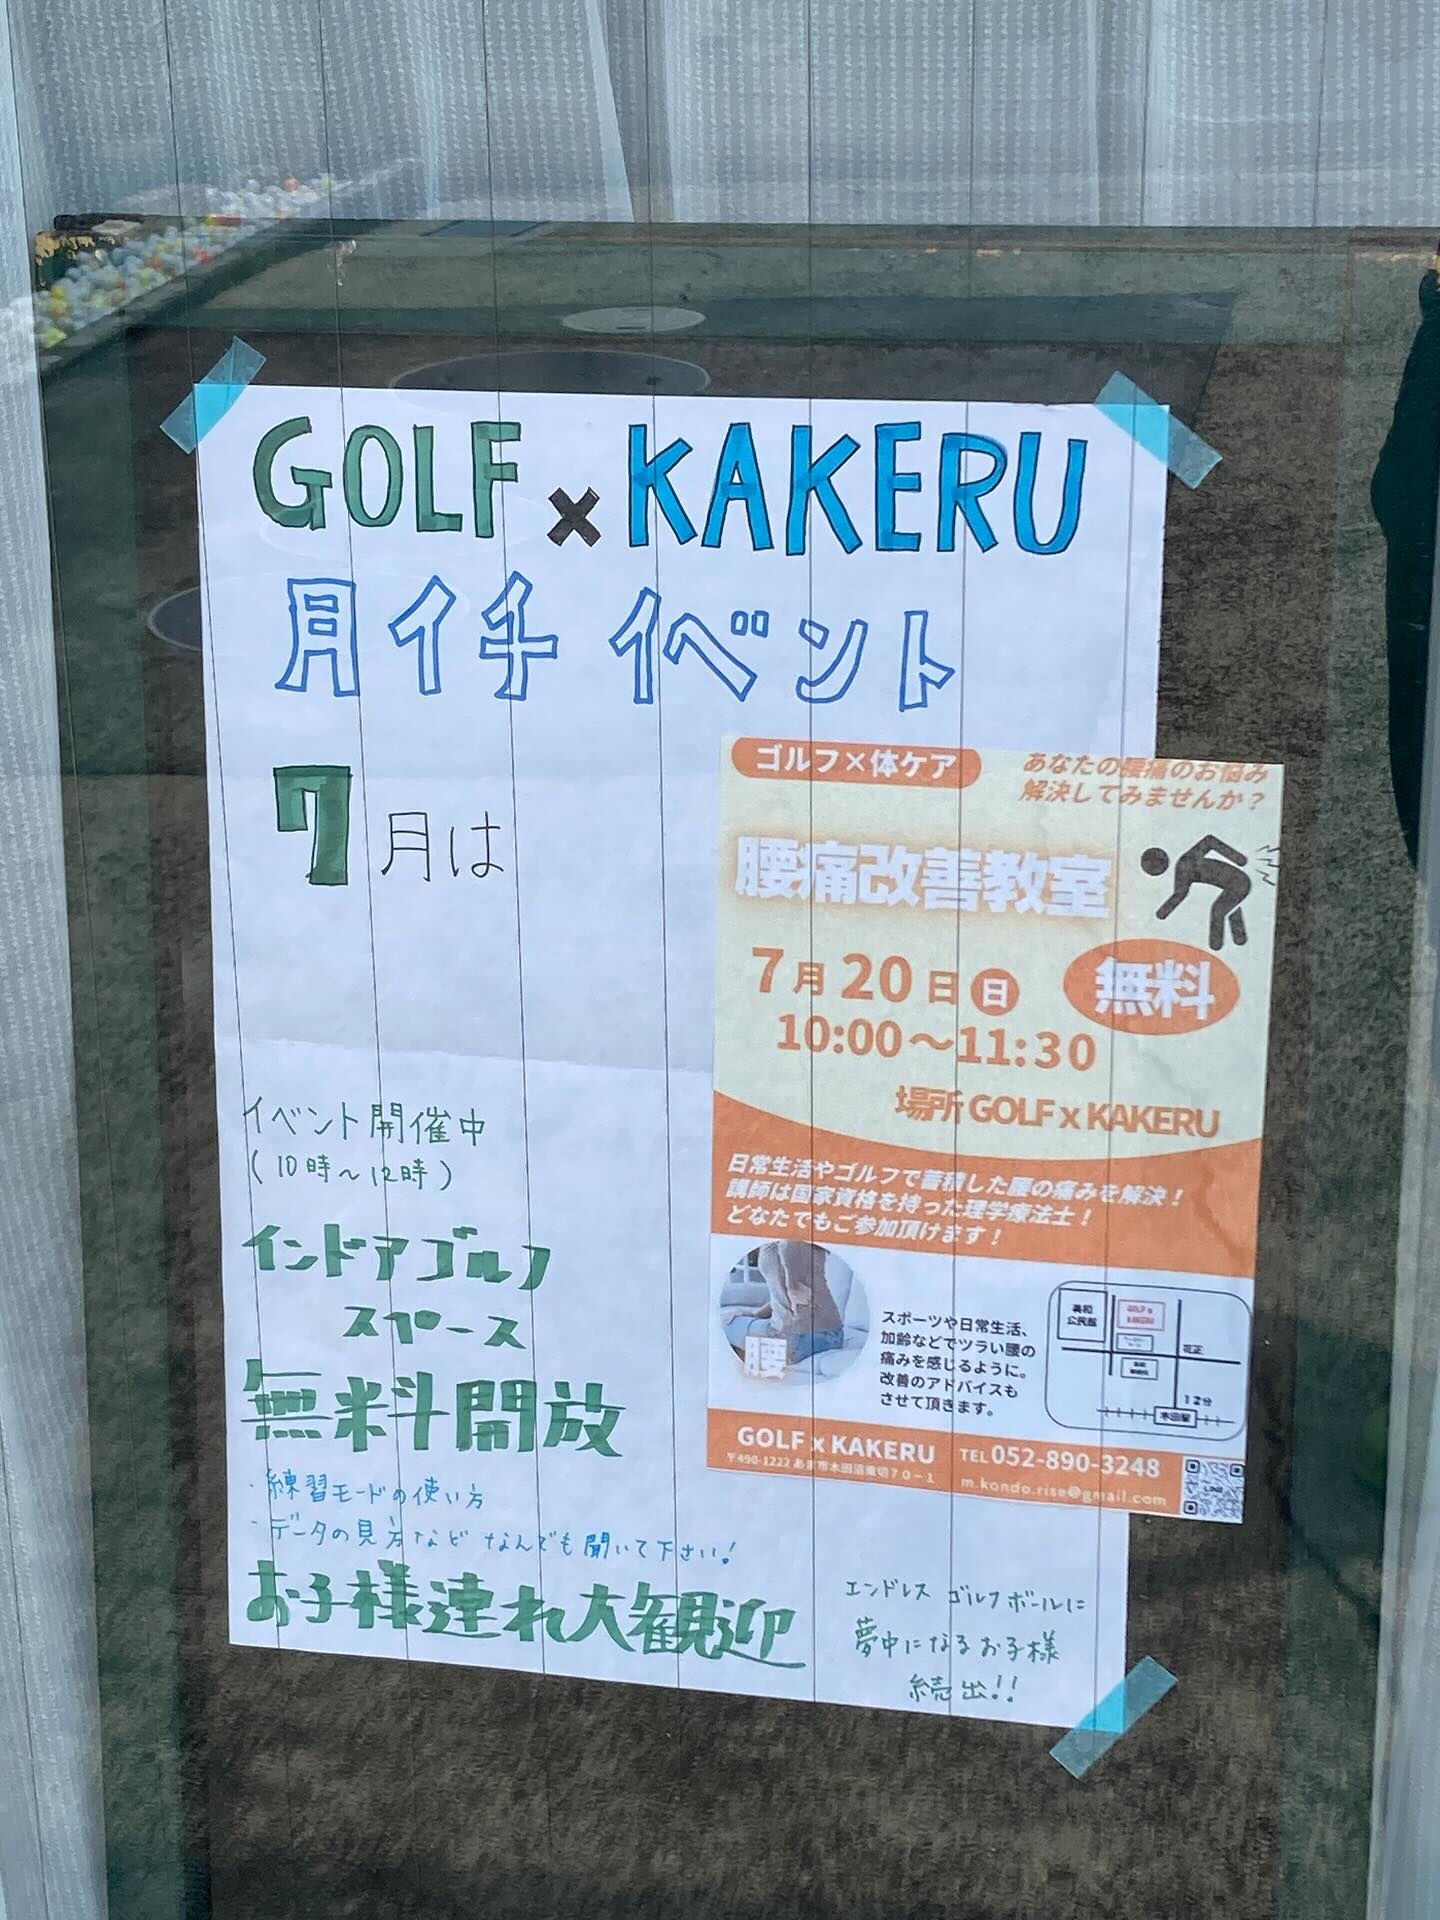 GOLF × KAKERU
月イチ イベント
7月は
ゴルフ×体ケア
あなたの腰痛のお悩み
解決してみませんか？
腰痛改善教室
7月20日日
無料
10:00〜11:30
場所 GOLF x KAKERU
日常生活やゴルフで蓄積した腰の痛みを解決！
講師は国家資格を持った理学療法士！
どなたでもご参加頂けます！
腰
スポーツや日常生活、
加齢などでツラい腰の
痛みを感じるように。
改善のアドバイスも
させて頂きます。
公民館
GOLF x
KAKERU
12分
木田駅
GOLF x KAKERU
〒490-1222 あま市木田道東切70-1
TEL 052-890-3248
m.kondo.rise@gmail.com
イベント開催中
(10時〜12時)
インドアゴルフ
スペース
無料開放
・練習モードの使い方
・データの見方など なんでも聞いて下さい!
お子様連れ大歓迎
エンドレス ゴルフボールに
夢中になるお子様
続出!!